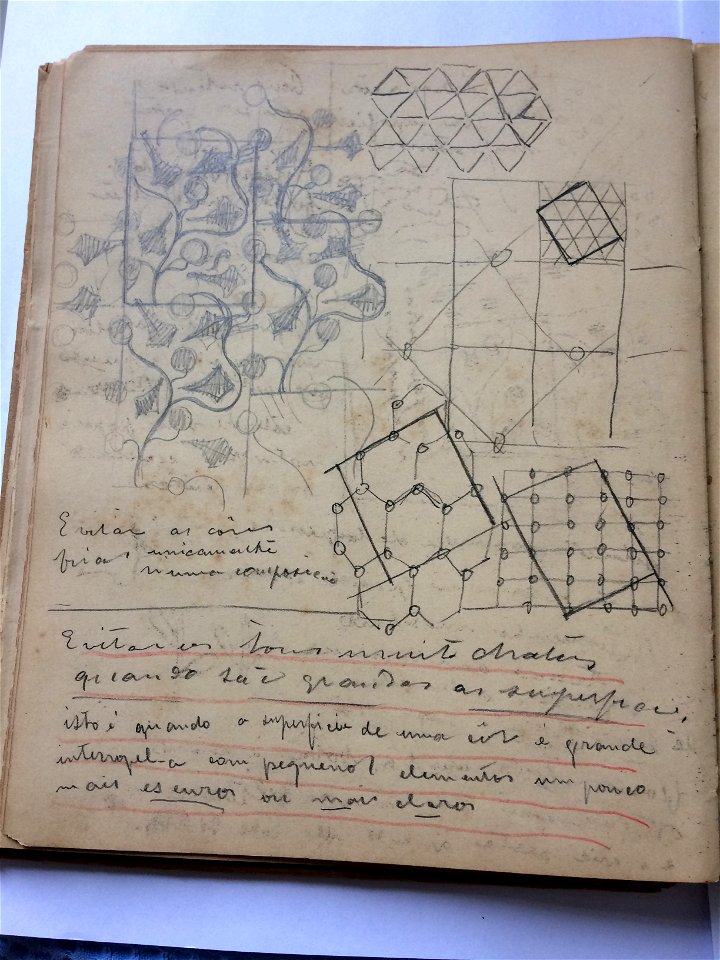 Evitar as côres
frias unicamente
numa composição
Evitar os tons muito chatos
quando são grandes as superficies,
isto é quando a superficie de uma côr é grande
interropel-a com pequenos elementos um pouco
mais escuros ou mais claros